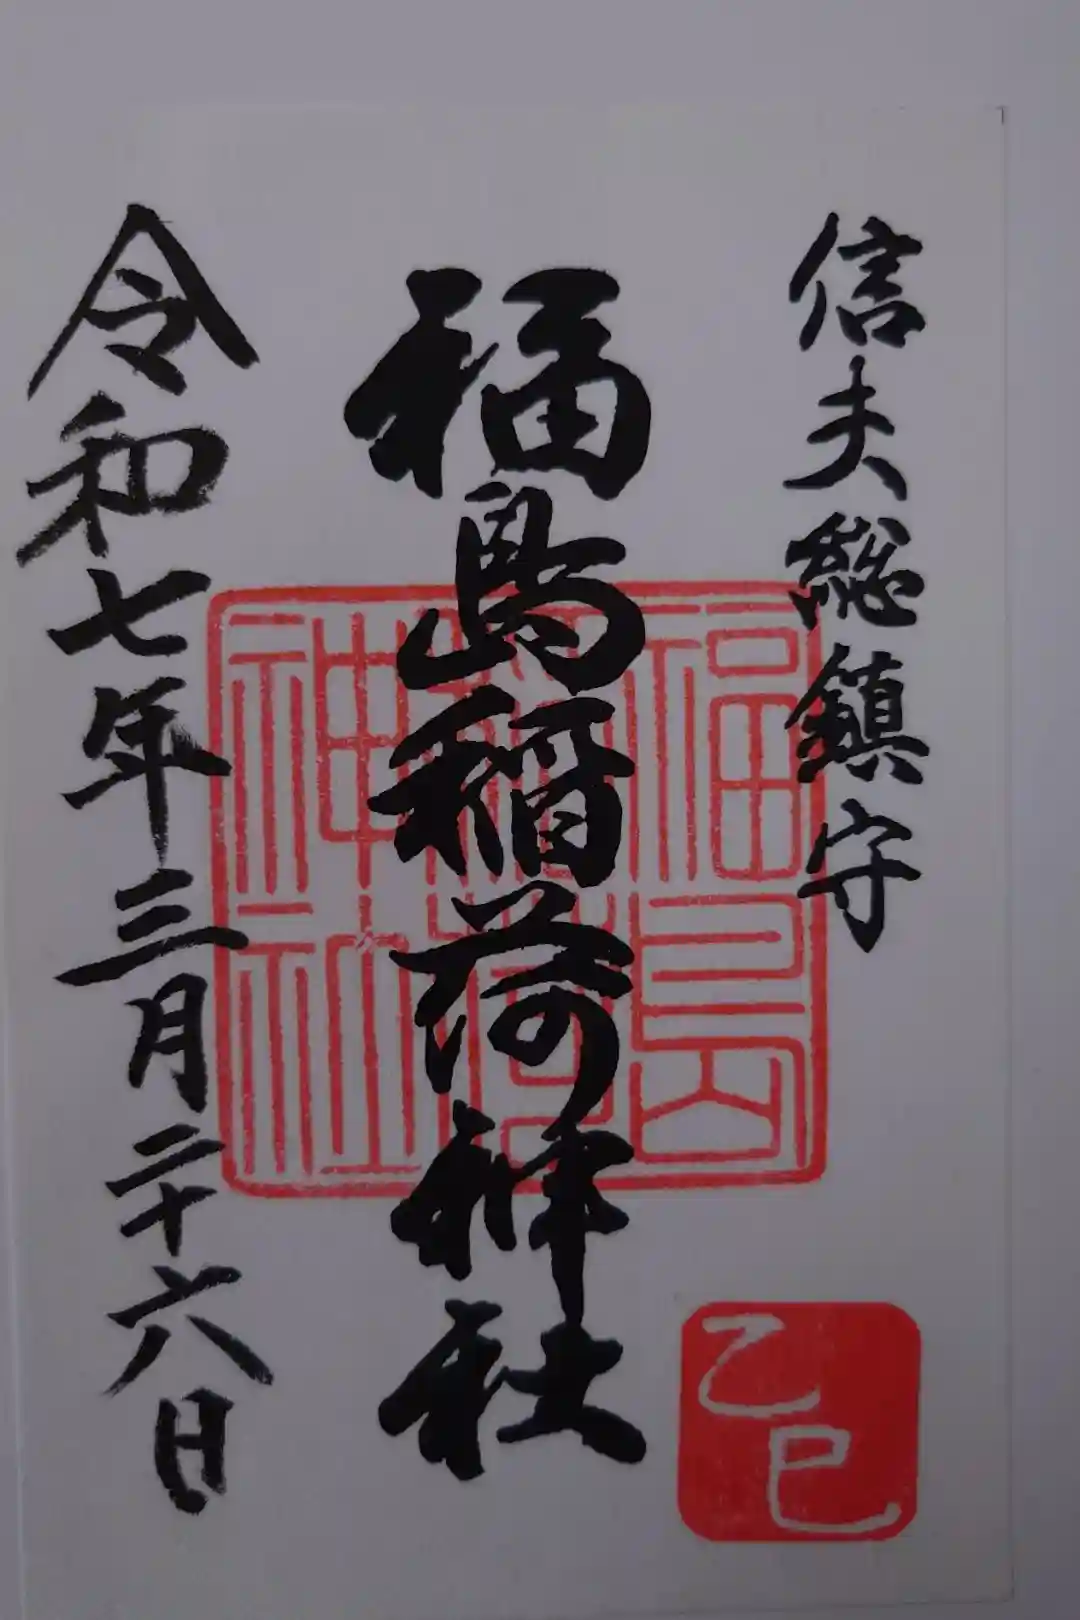 信夫総鎮守
福島稲荷神社
令和七年三月二十六日
福島
稲荷
神社
乙巳